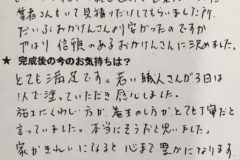 業者さんもいて見積りだけしてもらいました所、
だいぶおかけんさんより安かったのですが
やはり、信頼のあるおかけんさんに決めました。
★ 完成後の今のお気持ちは？
とても満足です。若い職人さんが3日は
1人で塗っていただき感心しました。
施工にくわしい方が、養生のし方がとても丁寧だと
言っていました。本当にそうだと思いました。
家がきれいになると心まで豊かになります